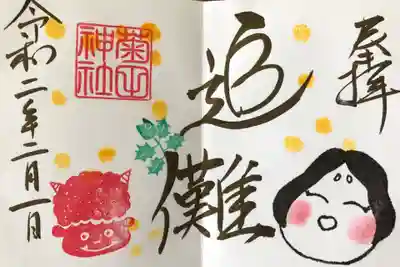 奉拝
追儺
菊田
神社
令和二年二月一日